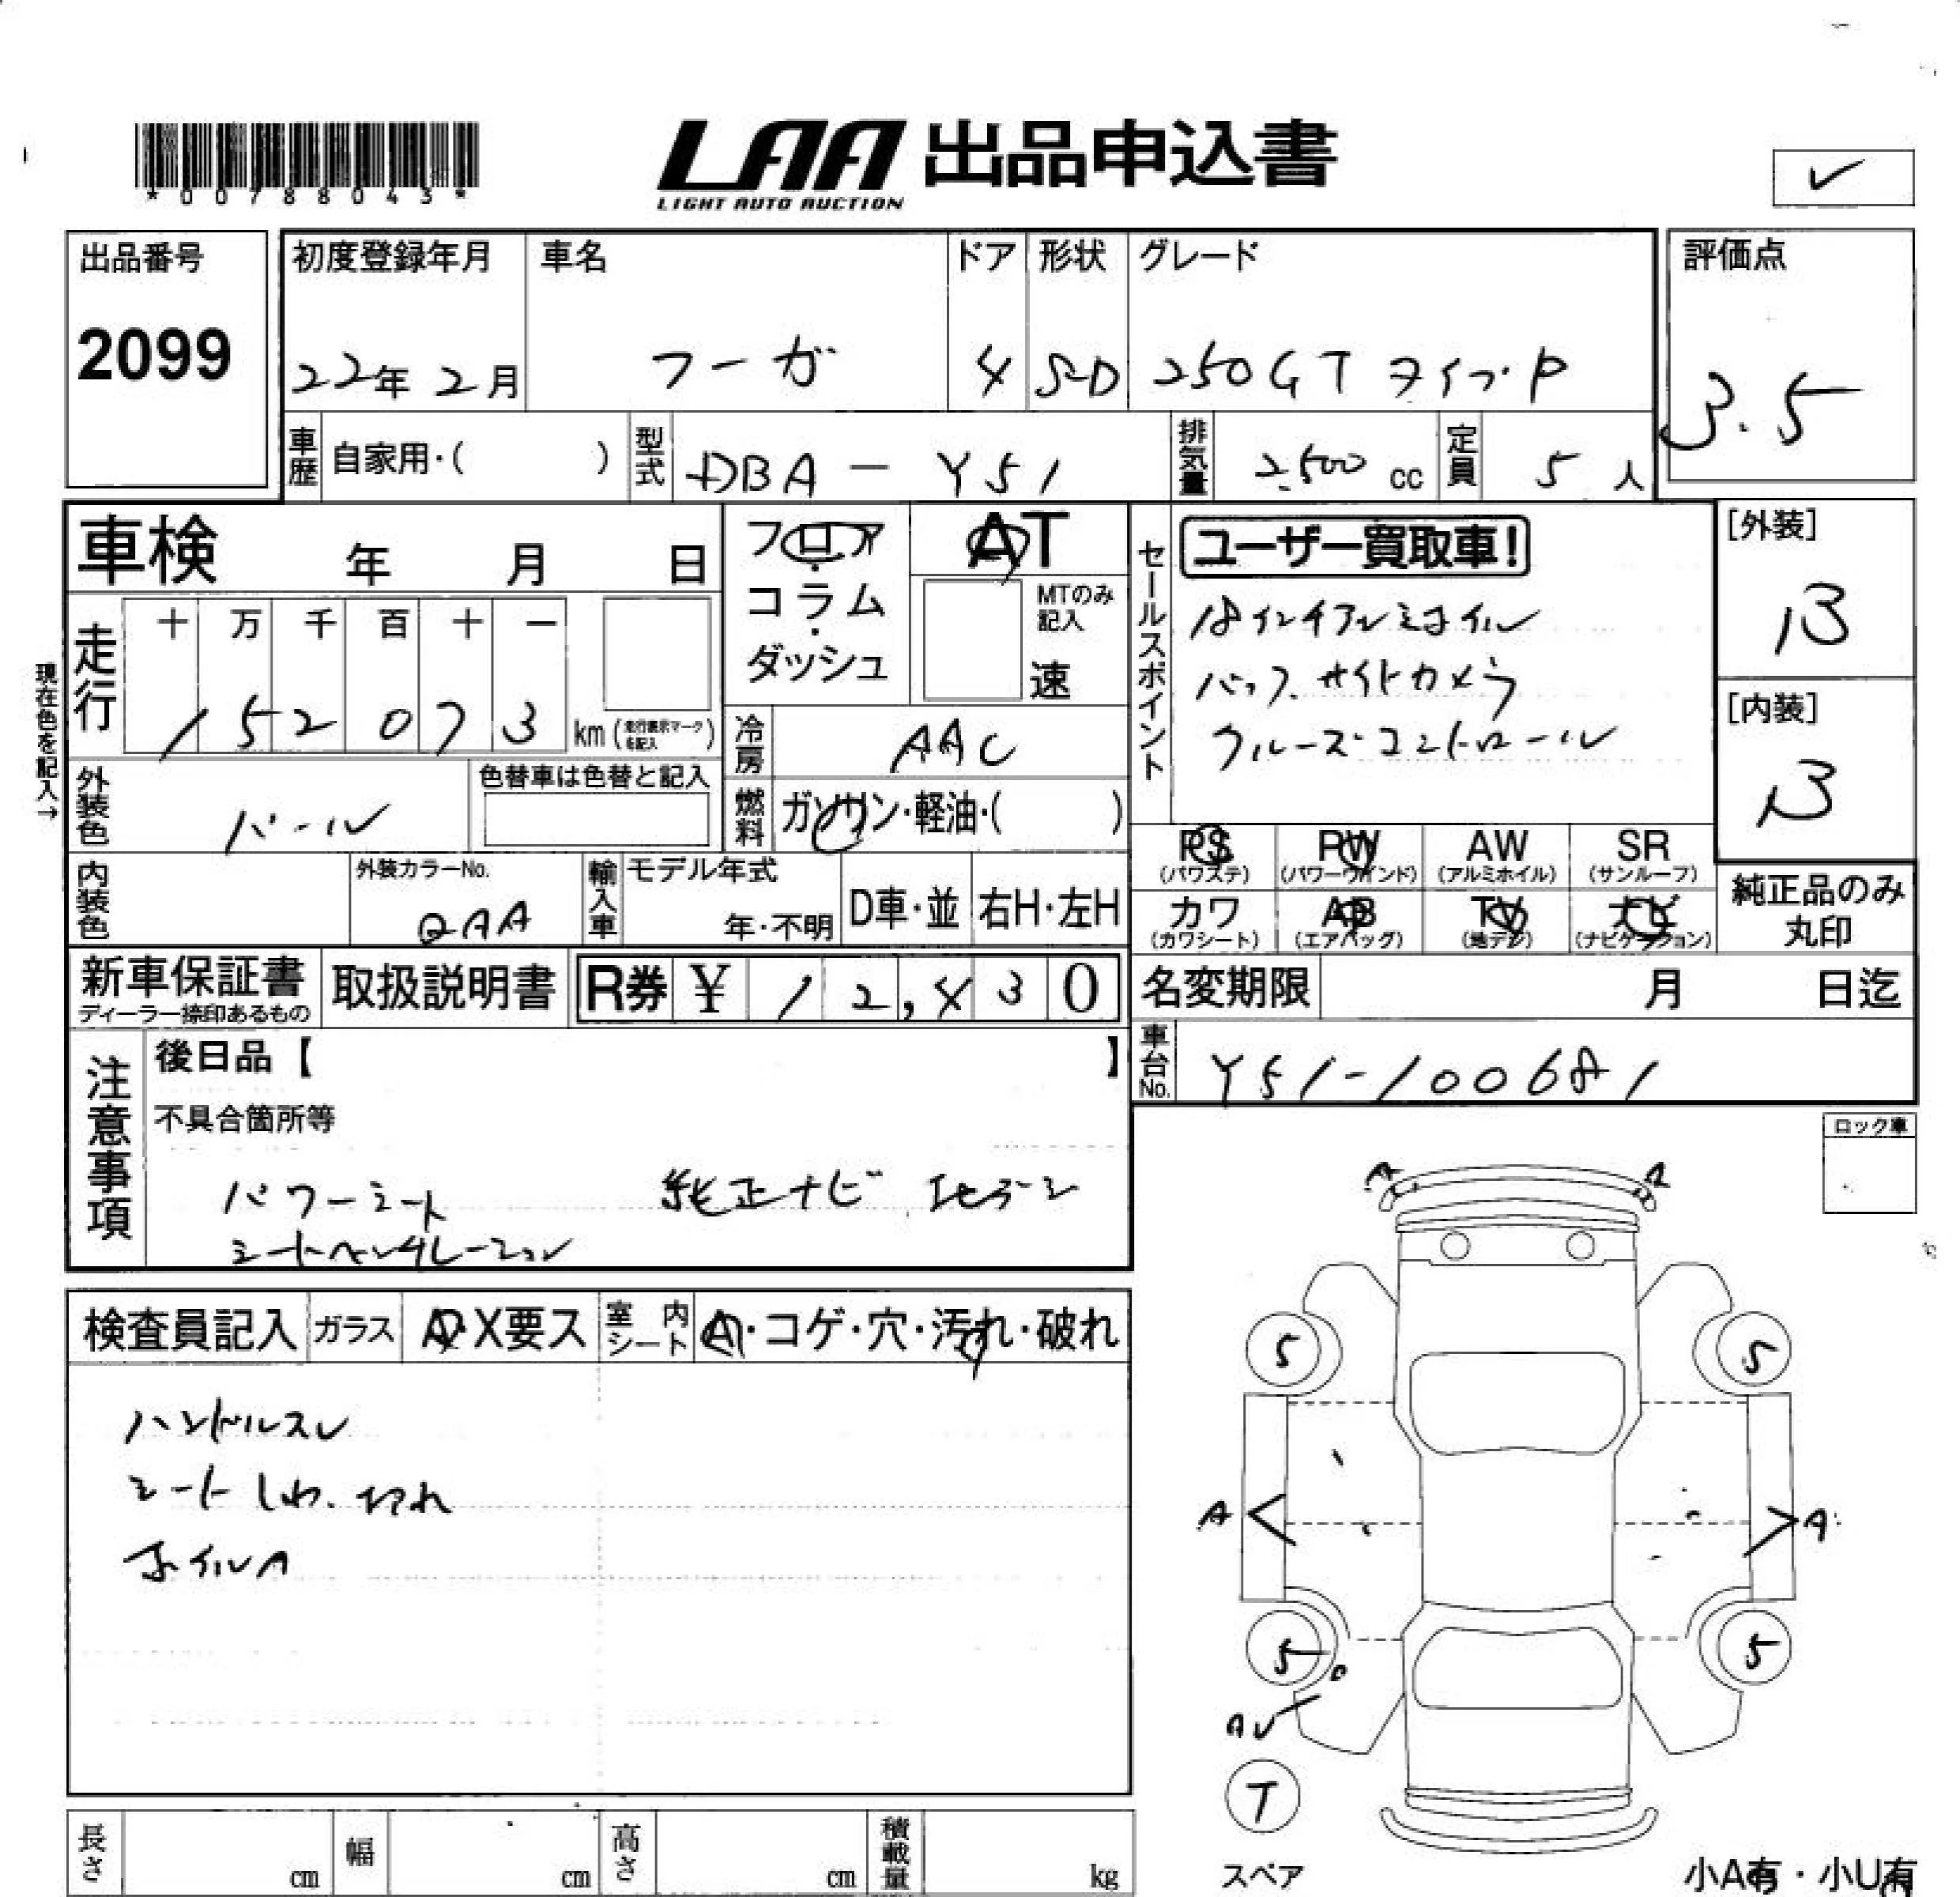 *00788043*
LAA 出品申込書
LIGHT AUTO AUCTION
✓
出品番号
2099
初度登録年月
22年2月
車名
フーガ
ドア
4
形状
SD
グレード
250GT タイプP
評価点
3.5
車歴 自家用・( )
型式 DBA-Y51
排気量 2,500 cc
定員 5人
車検 年 月 日
フロア・コラム・ダッシュ
AT
MTのみ記入
速
セールスポイント
ユーザー買取車!
18インチアルミホイル
バック.サイドカメラ
クルーズコントロール
[外装]
B
[内装]
B
現在色を記入→
走行
十 万 千 百 十 一
152073 km (走行表示マークを記入)
冷房 AAC
外装色 パール
色替車は色替と記入
燃料 ガソリン・軽油・( )
PS PW AW SR
(パワステ) (パワーウインド) (アルミホイル) (サンルーフ)
カワ AB TV ナビ
(カワシート) (エアバッグ) (地デジ) (ナビゲーション)
純正品のみ
丸印
内装色
外装カラーNo.
QAA
輸入車
モデル年式
年・不明
D車・並
右H・左H
新車保証書
ディーラー捺印あるもの
取扱説明書
R券 ¥ 12,430
名変期限 月 日迄
注意事項
後日品【 】
不具合箇所等
パワーシート 純正ナビ 地デジ
シートベンチレーション
車台No. Y51-100681
ロック車
検査員記入
ガラス A・X要ス
室内シート A・コゲ・穴・汚れ・破れ
ハンドルスレ
シートしわ.よごれ
ホイルA
A A
5 5
A A
5 5
AU
T
スペア
小A有・小U有
長さ cm
幅 cm
高さ cm
積載量 kg